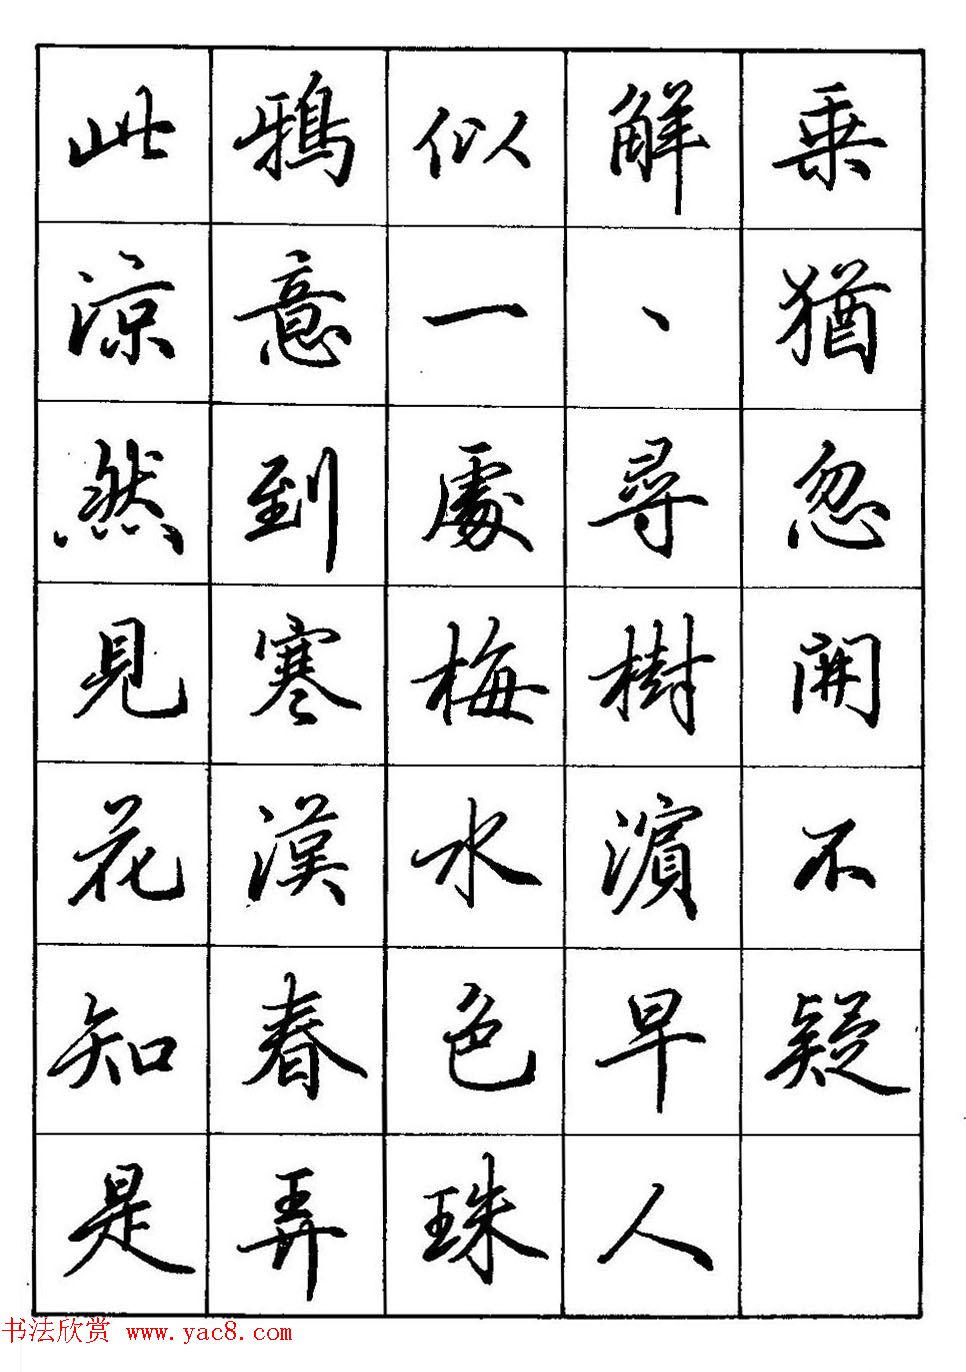 此鴉似解乘
涼意一、猶
然到處尋忽
見寒梅樹開
花漢水濱不
知春色早疑
是弄珠人
书法欣赏 www.yac8.com